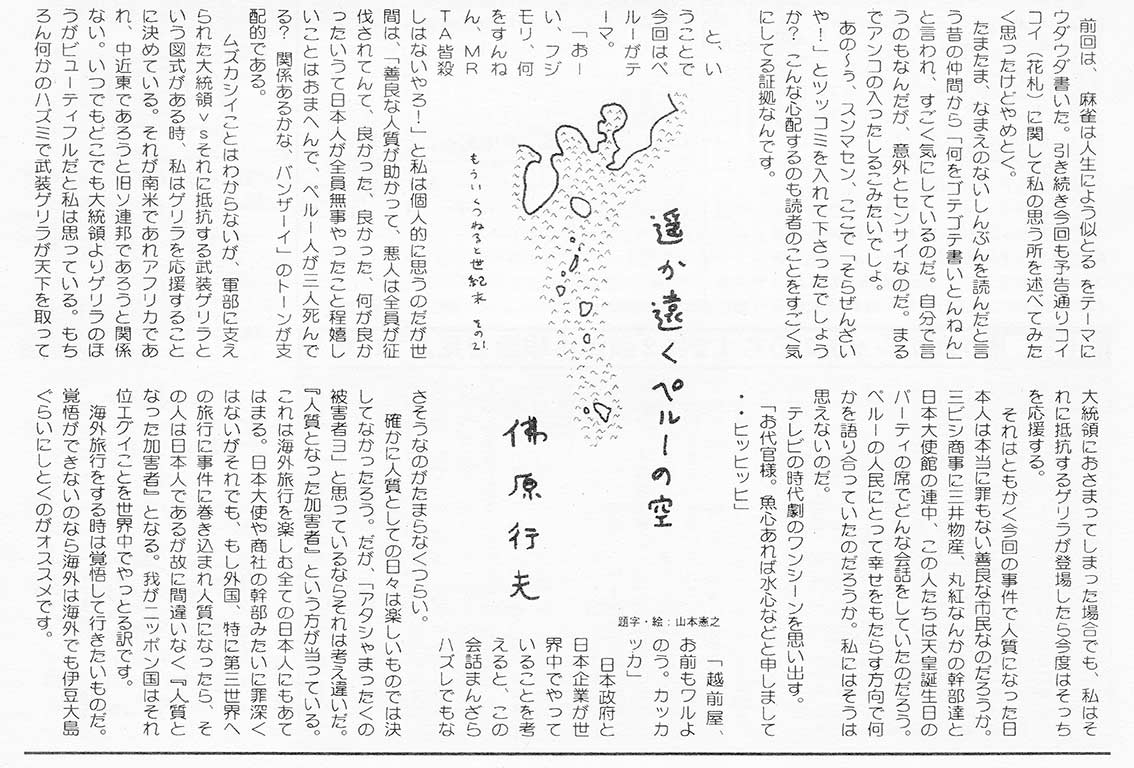 前回は、麻雀は人生によう似とる をテーマに
ウダウダ書いた。引き続き今回も予告通りコイ
コイ（花札）に関して私の思う所を述べてみた
く思ったけどやめとく。
たまたま、なまえのないしんぶんを読んだと言
う昔の仲間から「何をゴテゴテ書いとんねん」
と言われ、すごく気にしているのだ。自分で言
うのもなんだが、意外とセンサイなのだ。まる
でアンコの入ったしるこみたいでしょ。
あの～ぅ、スンマセン、ここで「そらぜんざい
や！」とツッコミを入れて下さったでしょう
か？ こんな心配するのも読者のことをすごく気
にしてる証拠なんです。
と、い
うことで
今回はペ
ルーがテ
ーマ。
「おー
い、フジ
モリ、何
をすんね
ん、MR
TA皆殺
しはないやろ！」と私は個人的に思うのだが世
間は、「善良な人質が助かって、悪人は全員が征
伐されてんて、良かった、良かった、何が良か
ったいうて日本人が全員無事やったこと程嬉し
いことはおまへんで、ペルー人が三人死んで
る？ 関係あるかな、バンザーイ」のトーンが支
配的である。
ムズカシイことはわからないが、軍部に支え
られた大統領ｖｓそれに抵抗する武装ゲリラと
いう図式がある時、私はゲリラを応援すること
に決めている。それが南米であれアフリカであ
れ、中近東であろうと旧ソ連邦であろうと関係
ない。いつでもどこでも大統領よりゲリラのほ
うがビューティフルだと私は思っている。もち
ろん何かのハズミで武装ゲリラが天下を取って
遥か遠くペルーの空
もういくつねると世紀末 その21
佛原行夫
題字・絵：山本憲之
大統領におさまってしまった場合でも、私はそ
れに抵抗するゲリラが登場したら今度はそっち
を応援する。
それはともかく今回の事件で人質になった日
本人は本当に罪もない善良な市民なのだろうか。
三ビシ商事に三井物産、丸紅なんかの幹部達と
日本大使館の連中、この人たちは天皇誕生日の
パーティの席でどんな会話をしていたのだろう。
ペルーの人民にとって幸せをもたらす方向で何
かを語り合っていたのだろうか。私にはそうは
思えないのだ。
テレビの時代劇のワンシーンを思い出す。
「お代官様。魚心あれば水心などと申しまして
・・ヒッヒッヒ」
「越前屋、
お前もワルよ
のう。カッカ
ッカ」
日本政府と
日本企業が世
界中でやって
いることを考
えると、この
会話まんざら
ハズレでもな
さそうなのがたまらなくつらい。
確かに人質としての日々は楽しいものでは決
してなかったろう。だが、「アタシャまったくの
被害者ヨ」と思っているならそれは考え違いだ。
『人質となった加害者』という方が当っている。
これは海外旅行を楽しむ全ての日本人にもあて
はまる。日本大使や商社の幹部みたいに罪深く
はないがそれでも、もし外国、特に第三世界へ
の旅行に事件に巻き込まれ人質になったら、そ
の人は日本人であるが故に間違いなく『人質と
なった加害者』となる。我がニッポン国はそれ
位エゲイことを世界中でやっとる訳です。
海外旅行をする時は覚悟して行きたいものだ。
覚悟ができないのなら海外は海外でも伊豆大島
ぐらいにしとくのがオススメです。